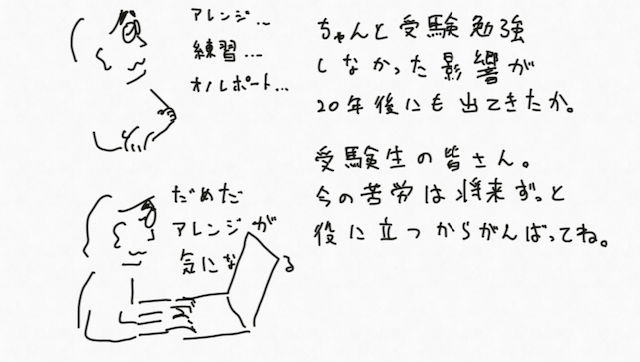 アレンジ…
練習…
オルポート…
ちゃんと受験勉強
しなかった影響が
20年後にも出てきたか。
受験生の皆さん。
今の苦労は将来ずっと
役に立つからがんばってね。
だめだ
アレンジが
気になる